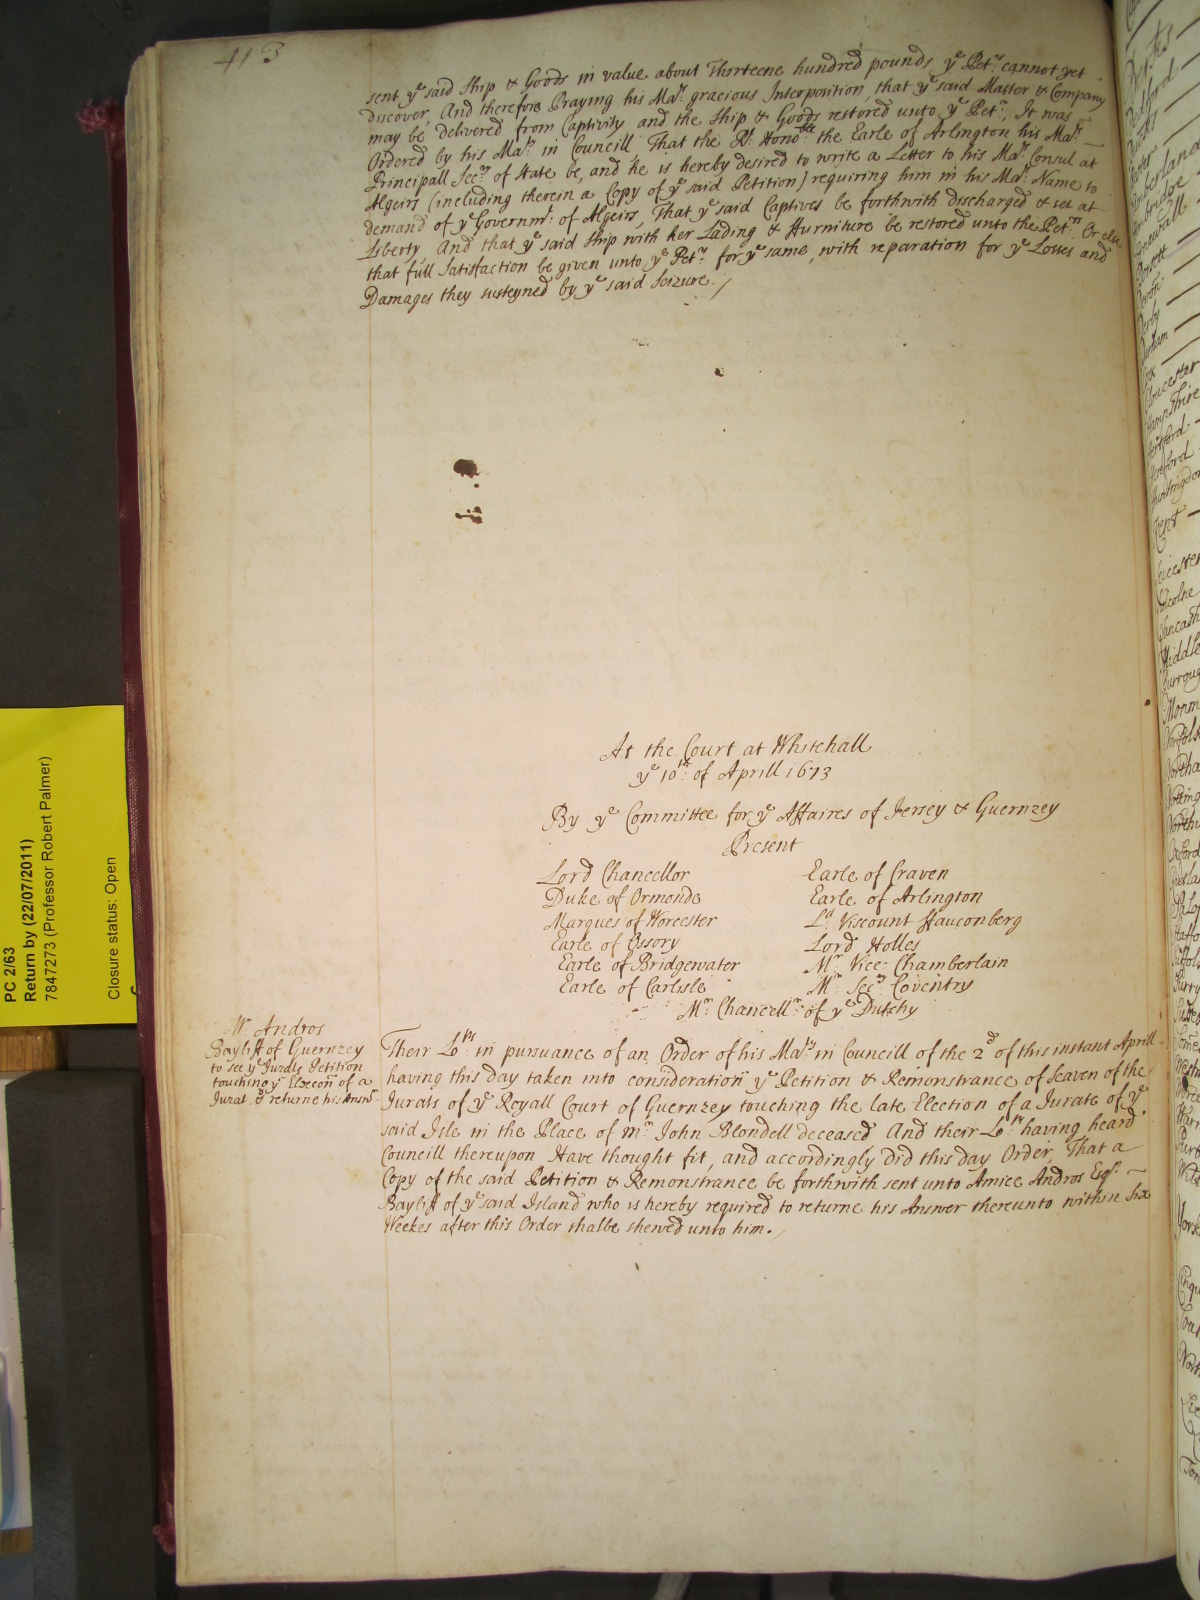 413
sent yͤ said Ship & Goods in value about Thirteene hundred pounds yͤ Petʳ cannot yet
discover, And therefore Praying his Maᵗˢ gracious Interposition, that yͤ said Master & Company
may be delivered from Captivity and the Ship & Goods restored unto yͤ Petʳ, It was
Ordered by his Maᵗʸ in Councill That the Rᵗ Honoᵇˡᵉ the Earle of Arlington his Maᵗˢ
Principall Secʳʸ of State be, and he is hereby desired to write a Letter to his Maᵗˢ Consul at
Algeirs (including therein a Copy of yͤ said Petition) requiring him in his Maᵗˢ Name to
demand of yͤ Governmᵗ of Algeirs, That yͤ said Captives be forthwith discharged & set at
Liberty And that yͤ said Ship with her Lading & Furniture be restored unto the Petʳ Or else
that full Satisfaction be given unto yͤ Petʳ for yͤ same, with reparation for yͤ Losses and
Damages they susteyned by yͤ said Seizure.
At the Court at Whitehall
yͤ 10ᵗʰ of Aprill 1673
By yͤ Committee for yͤ Affaires of Jersey & Guernzey
Present
Lord Chancellor Earle of Craven
Duke of Ormonde Earle of Arlington
Marques of Worcester Lᵈ Viscount Fauconberg
Earle of Ossory Lord Holles
Earle of Bridgewater Mʳ Vice-Chamberlain
Earle of Carlisle Mʳ Secʳʸ Coventry
Mʳ Chancellʳ of yͤ Dutchy
Mʳ Andros
Bayliff of Guernzey
to see yͤ Jurdts Petition
touching yͤ Eleccon of a
Jurat & returne his Answʳ
Their Loᵖˢ in pursuance of an Order of his Maᵗʸ in Councill of the 2ᵈ of this instant Aprill
having this day taken into consideration yͤ Petition & Remonstrance of Seaven of the
Jurats of yͤ Royall Court of Guernzey touching the late Election of a Jurate of yͤ
said Isle in the Place of Mʳ John Blondell deceased And their Loᵖˢ having heard
Councill thereupon Have thought fit, and accordingly did this day Order, That a
Copy of the said Petition & Remonstrance be forthwith sent unto Amice Andros Esqʳ
Bayliff of yͤ said Island who is hereby required to returne his Answer thereunto within Six
Weekes after this Order shalbe shewed unto him.
PC 2/63
Return by (22/07/2011)
7847273 (Professor Robert Palmer)
Closure status: Open